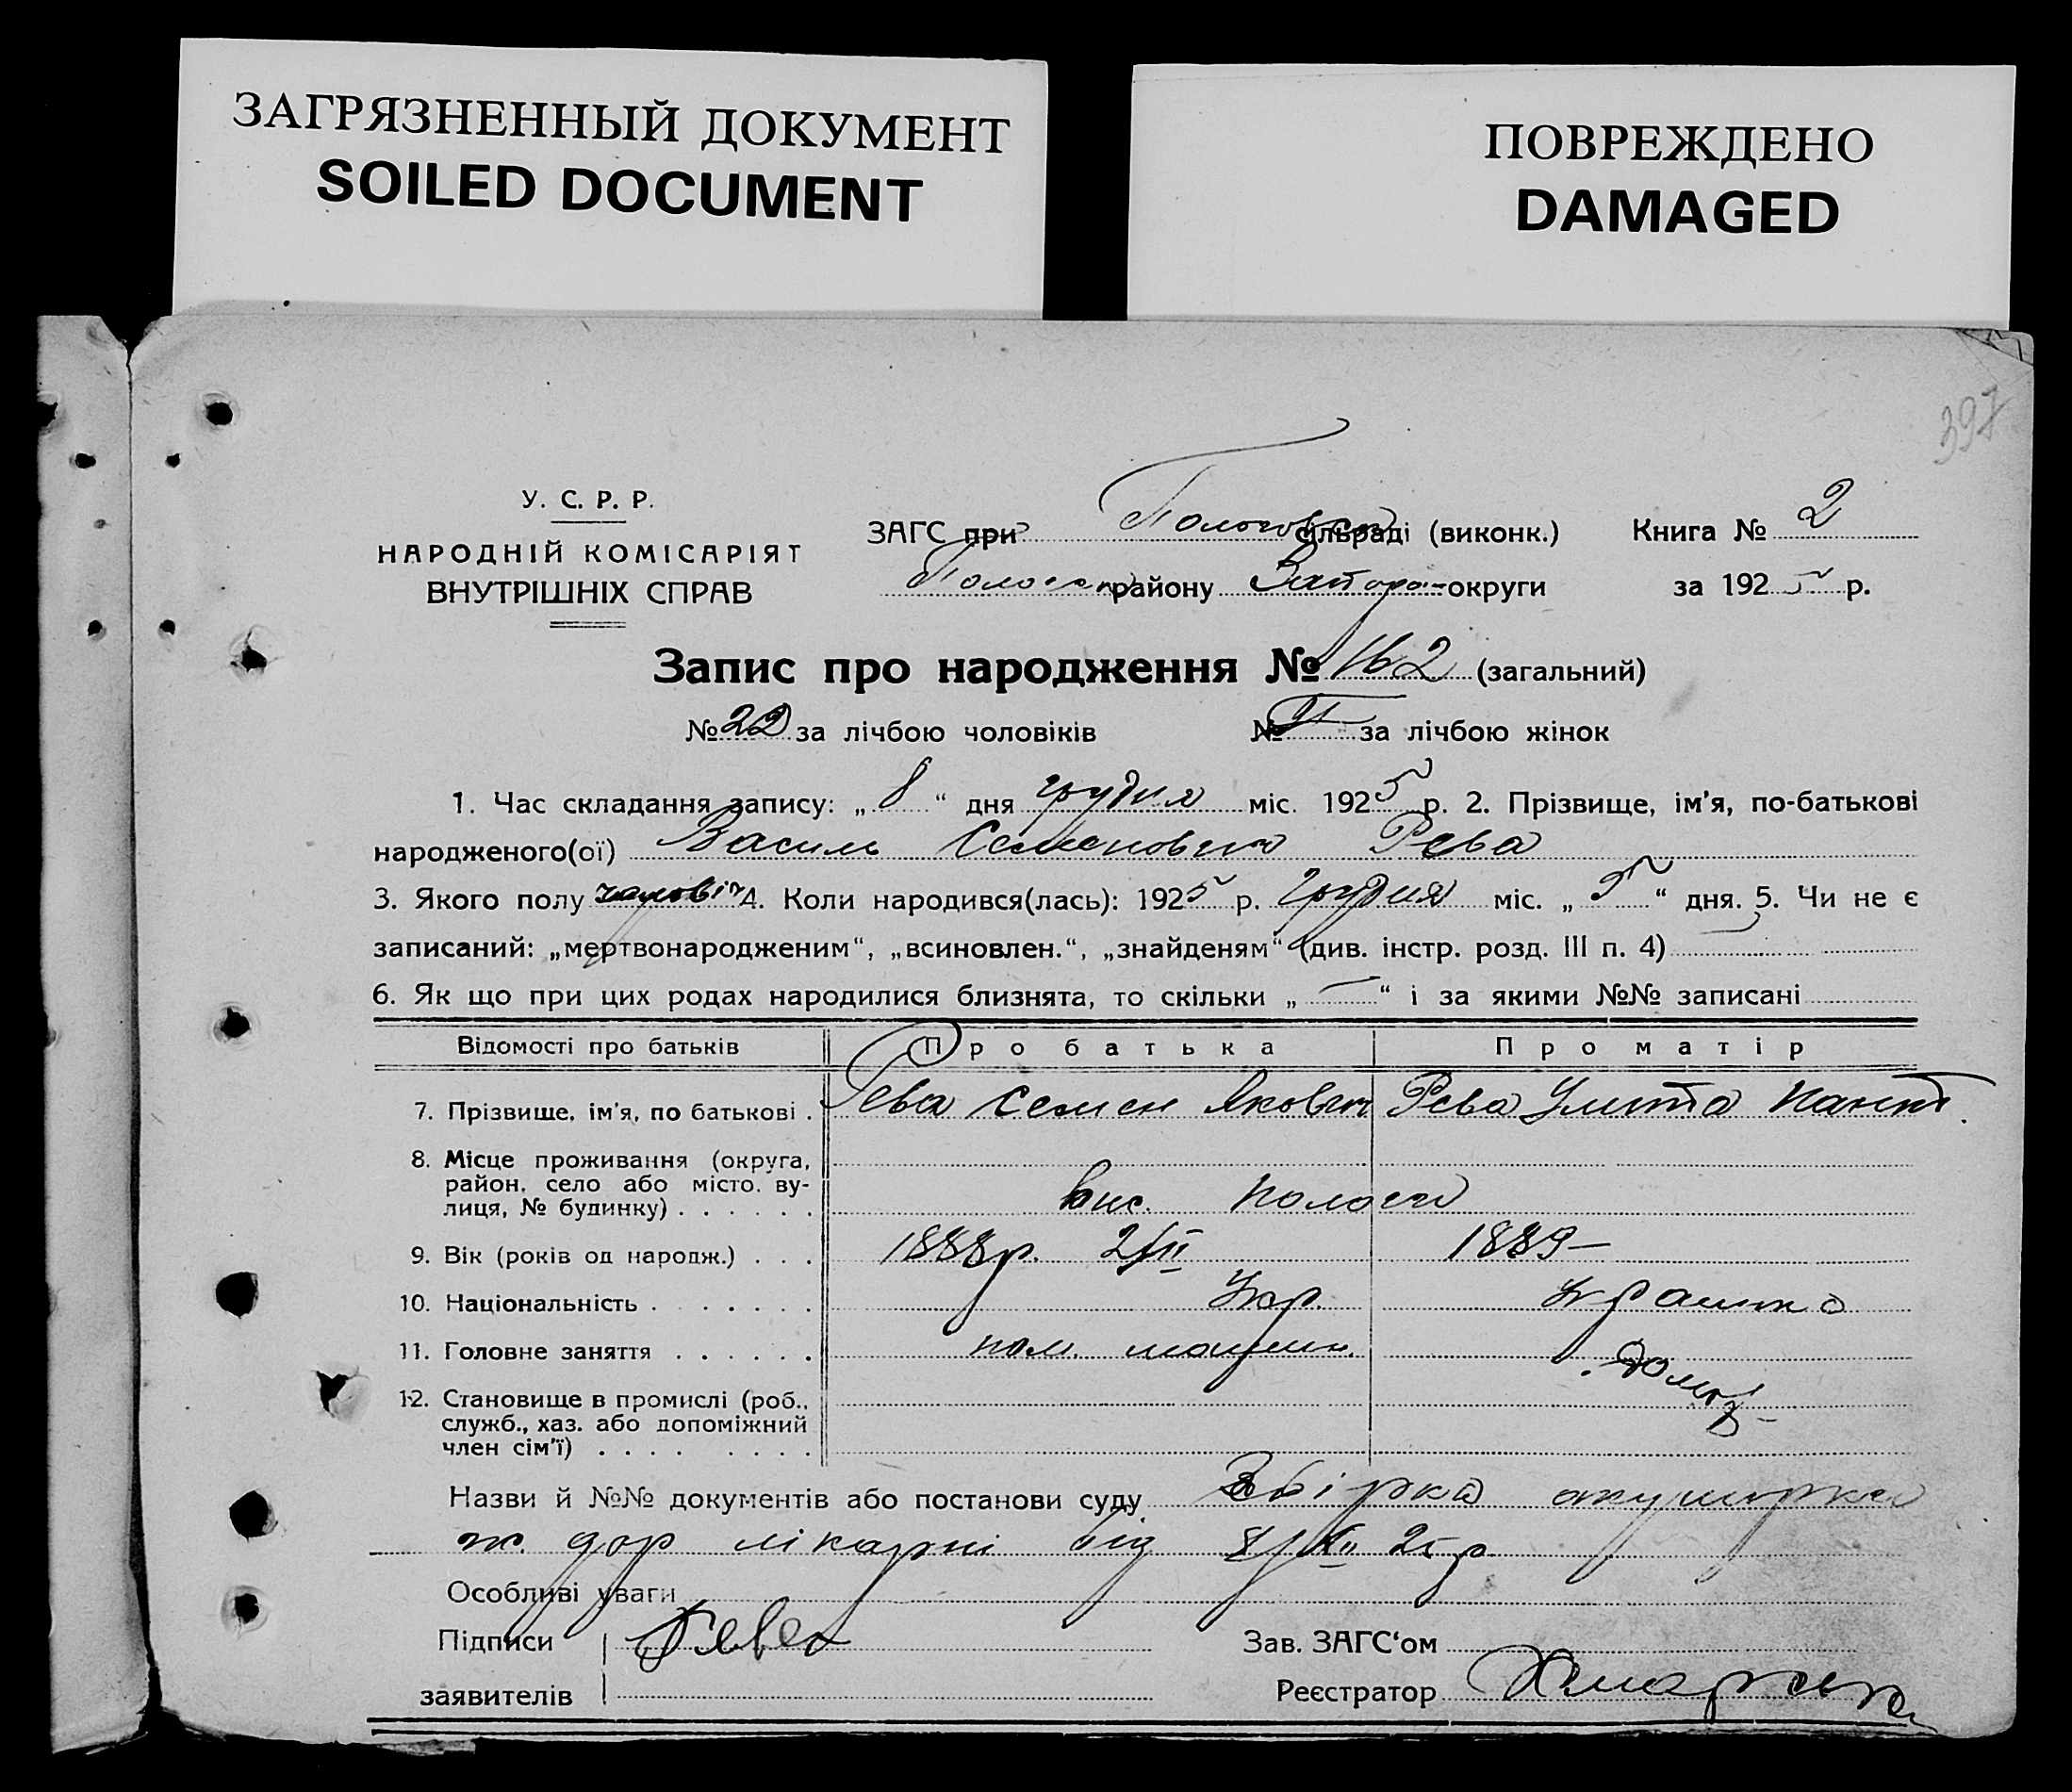 ЗАГРЯЗНЕННЫЙ ДОКУМЕНТ
SOILED DOCUMENT
ПОВРЕЖДЕНО
DAMAGED
397
У. С. Р. Р.
НАРОДНІЙ КОМІСАРІЯТ
ВНУТРІШНІХ СПРАВ
ЗАГС при Пологовськ сільраді (виконк.) Книга № 2
району Запор округи за 1925 р.
Запис про народження № 162 (загальний)
№ 22 за лічбою чоловіків № за лічбою жінок
1. Час складання запису: „ 8 “ дня грудня міс. 1925 р. 2. Прізвище, ім'я, по-батькові
народженого(ої) Василь Семенович Рева
3. Якого полу чоловіч 4. Коли народився(лась): 1925 р. грудня міс. „ 5 “ дня. 5. Чи не є
записаний: „мертвонародженим“, „всиновлен.“, „знайденям“ (див. інстр. розд. III п. 4)
6. Як що при цих родах народилися близнята, то скільки „ — “ і за якими №№ записані
Відомості про батьків Про батька Про матір
7. Прізвище, ім'я, по батькові . Рева Семен Якович Рева Улита Пант.
8. Місце проживання (округа,
район, село або місто, ву-
лиця, № будинку) . . . . . . Пологи
9. Вік (років од народж.) . . . 1888р. 2/II 1889 –
10. Національність . . . . . . . Укр. Українка
11. Головне заняття . . . . . . пом. машин. Домог
12. Становище в промислі (роб.,
служб., хаз. або допоміжний
член сім'ї) . . . . . . . .
Назви й №№ документів або постанови суду акушерки
ж. дор лікарні від 8/XII 25р
Особливі уваги
Підписи Рева Зав. ЗАГС‘ом
заявителів Реєстратор